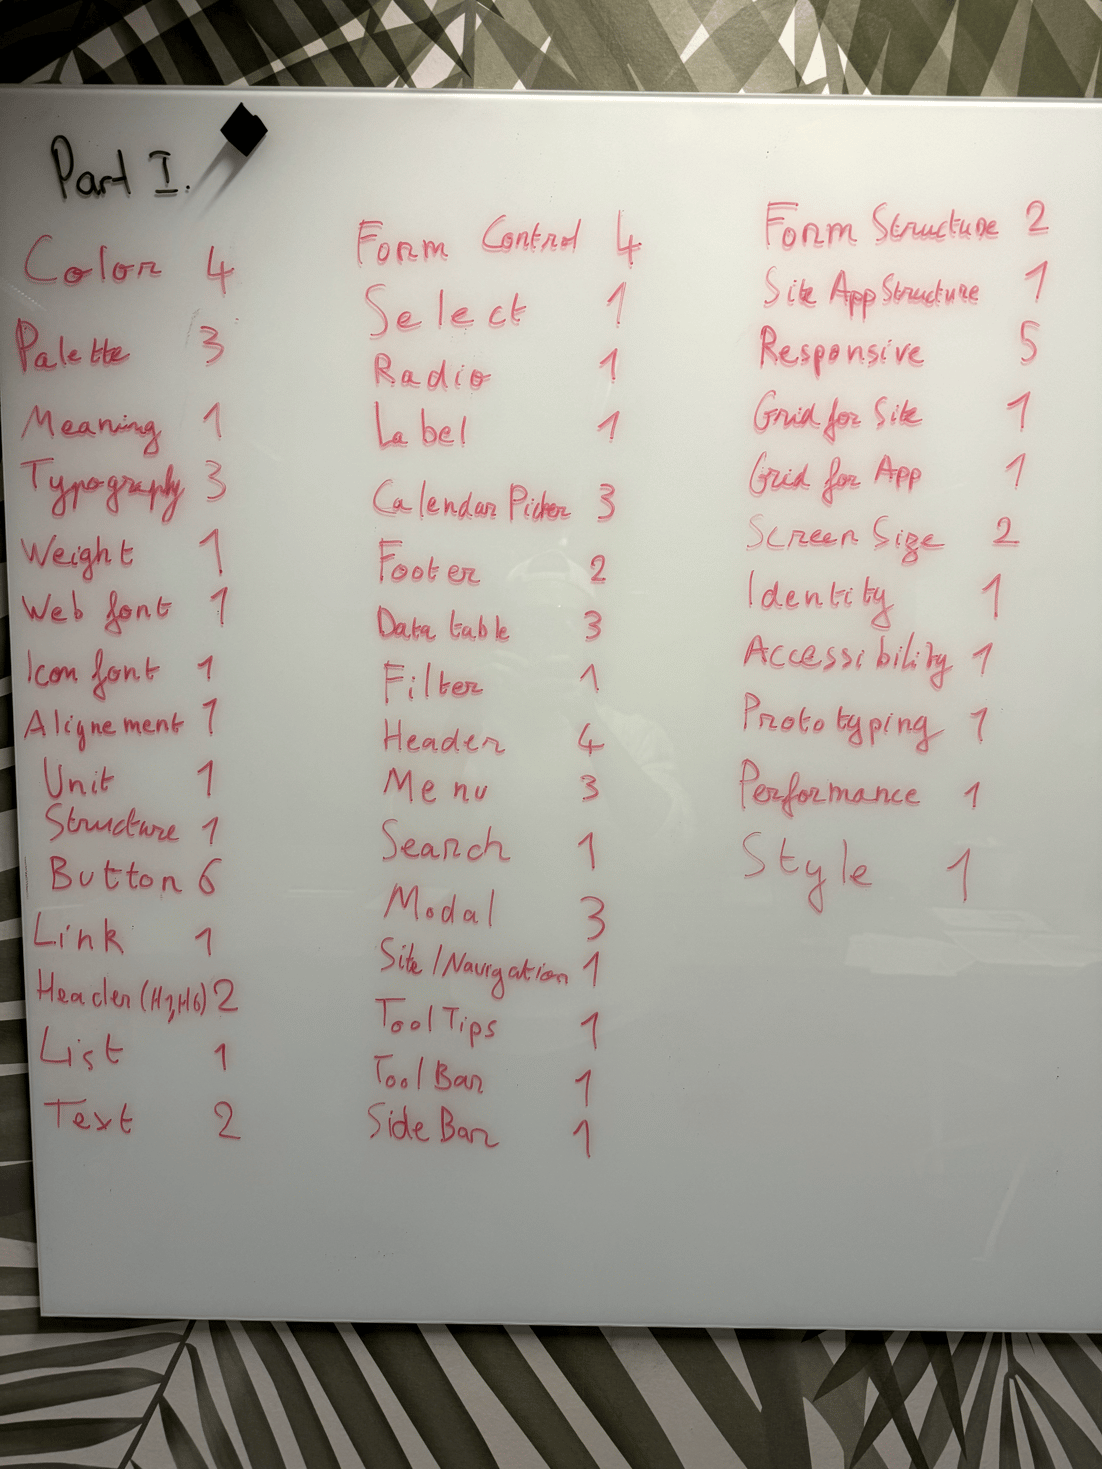 Part I.
Color 4
Palette 3
Meaning 1
Typography 3
Weight 1
Web font 1
Icon font 1
Alignement 1
Unit 1
Structure 1
Button 6
Link 1
Header (H1,H6) 2
List 1
Text 2
Form Control 4
Select 1
Radio 1
Label 1
Calendar Picker 3
Footer 2
Data table 3
Filter 1
Header 4
Menu 3
Search 1
Modal 3
Site/Navigation 1
Tool Tips 1
Tool Bar 1
Side Bar 1
Form Structure 2
Site App Structure 1
Responsive 5
Grid for Site 1
Grid for App 1
Screen Size 2
Identity 1
Accessibility 1
Prototyping 1
Performance 1
Style 1